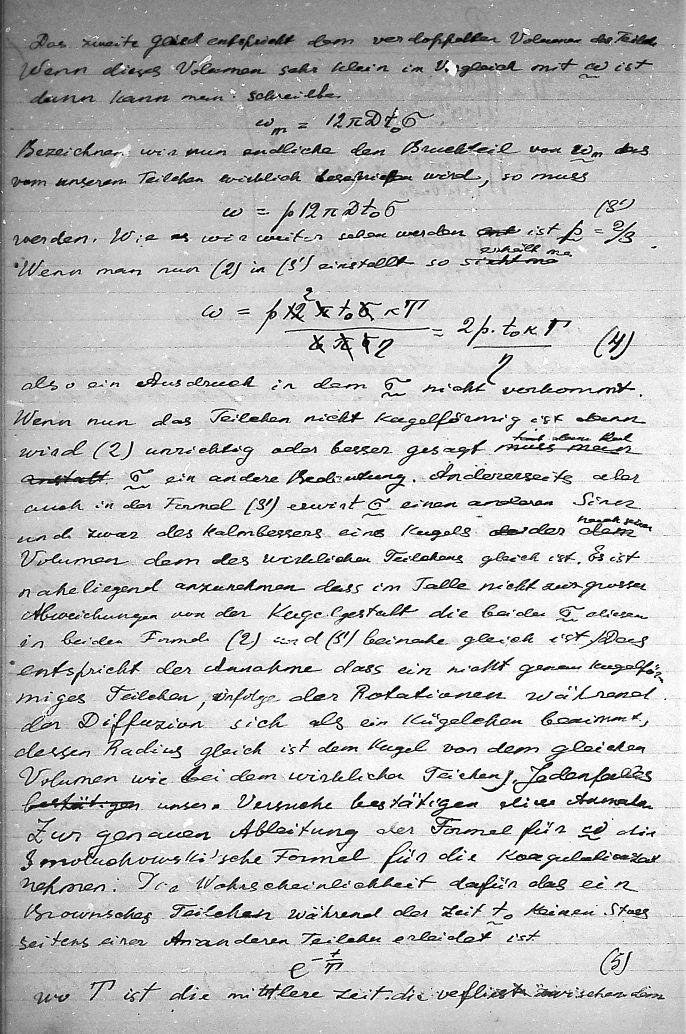 Das zweite Glied entspricht dem verdoppelten Volumen des Teilch
Wenn dieses Volumen sehr klein im Vergleich mit ω ist
dann kann man schreiben
ωm = 12πDt₀σ
Bezeichnen wir nun endliche den Bruchteil von ωm das
vom unserem Teilchen wirklich wird, so muss
ω = p12πDt₀σ (3')
werden. Wie es wir weiter sehen werden ist p = 2/3.
Wenn man nun (2) in (3') einstellt so erhält me
ω = p12πt₀σκT / 6πση = 2p·t₀κT / η (4)
also ein Ausdruck in dem σ nicht vorkommt.
Wenn nun das Teilchen nicht kugelförmig ist dann
wird (2) unrichtig oder besser gesagt
anstatt σ ein andere Bedeutung. Andererseits aber
auch in der Formel (3') erwirt σ einen anderen Sinn
und zwar des Halmbessers eines Kugels der
Volumen dem des wirklichen Teilchens gleich ist. Es ist
naheliegend anzunehmen dass im Falle nicht zur grosser
Abweichungen von der Kugelgestalt die beiden σ diesen
in beiden Formel (2) und (3') beinahe gleich ist. (Das
entspricht der Annahme dass ein nicht genau kugelför
miges Teilchen, infolge der Rotationen während
der Diffuzion sich als ein Kügelchen benimmt,
dessen Radius gleich ist dem Kugel von dem gleichen
Volumen wie bei dem wirklichen Teichen). Jedenfalls
bestätigen unsere Versuche bestätigen diese Annahm
Zur genauen Ableitung der Formel für ω die
Smoluchowski'sche Formel für die Koagulationszeit
nehmen: Die Wahrscheinlichkeit dafür das ein
Brownsches Teilchen während der Zeit t₀ keinen Stoss
seitens einer Ananderen Teilchen erleidet ist
e^-t/T (5)
wo T ist die mittlere Zeit die verfliesst zwischen dem